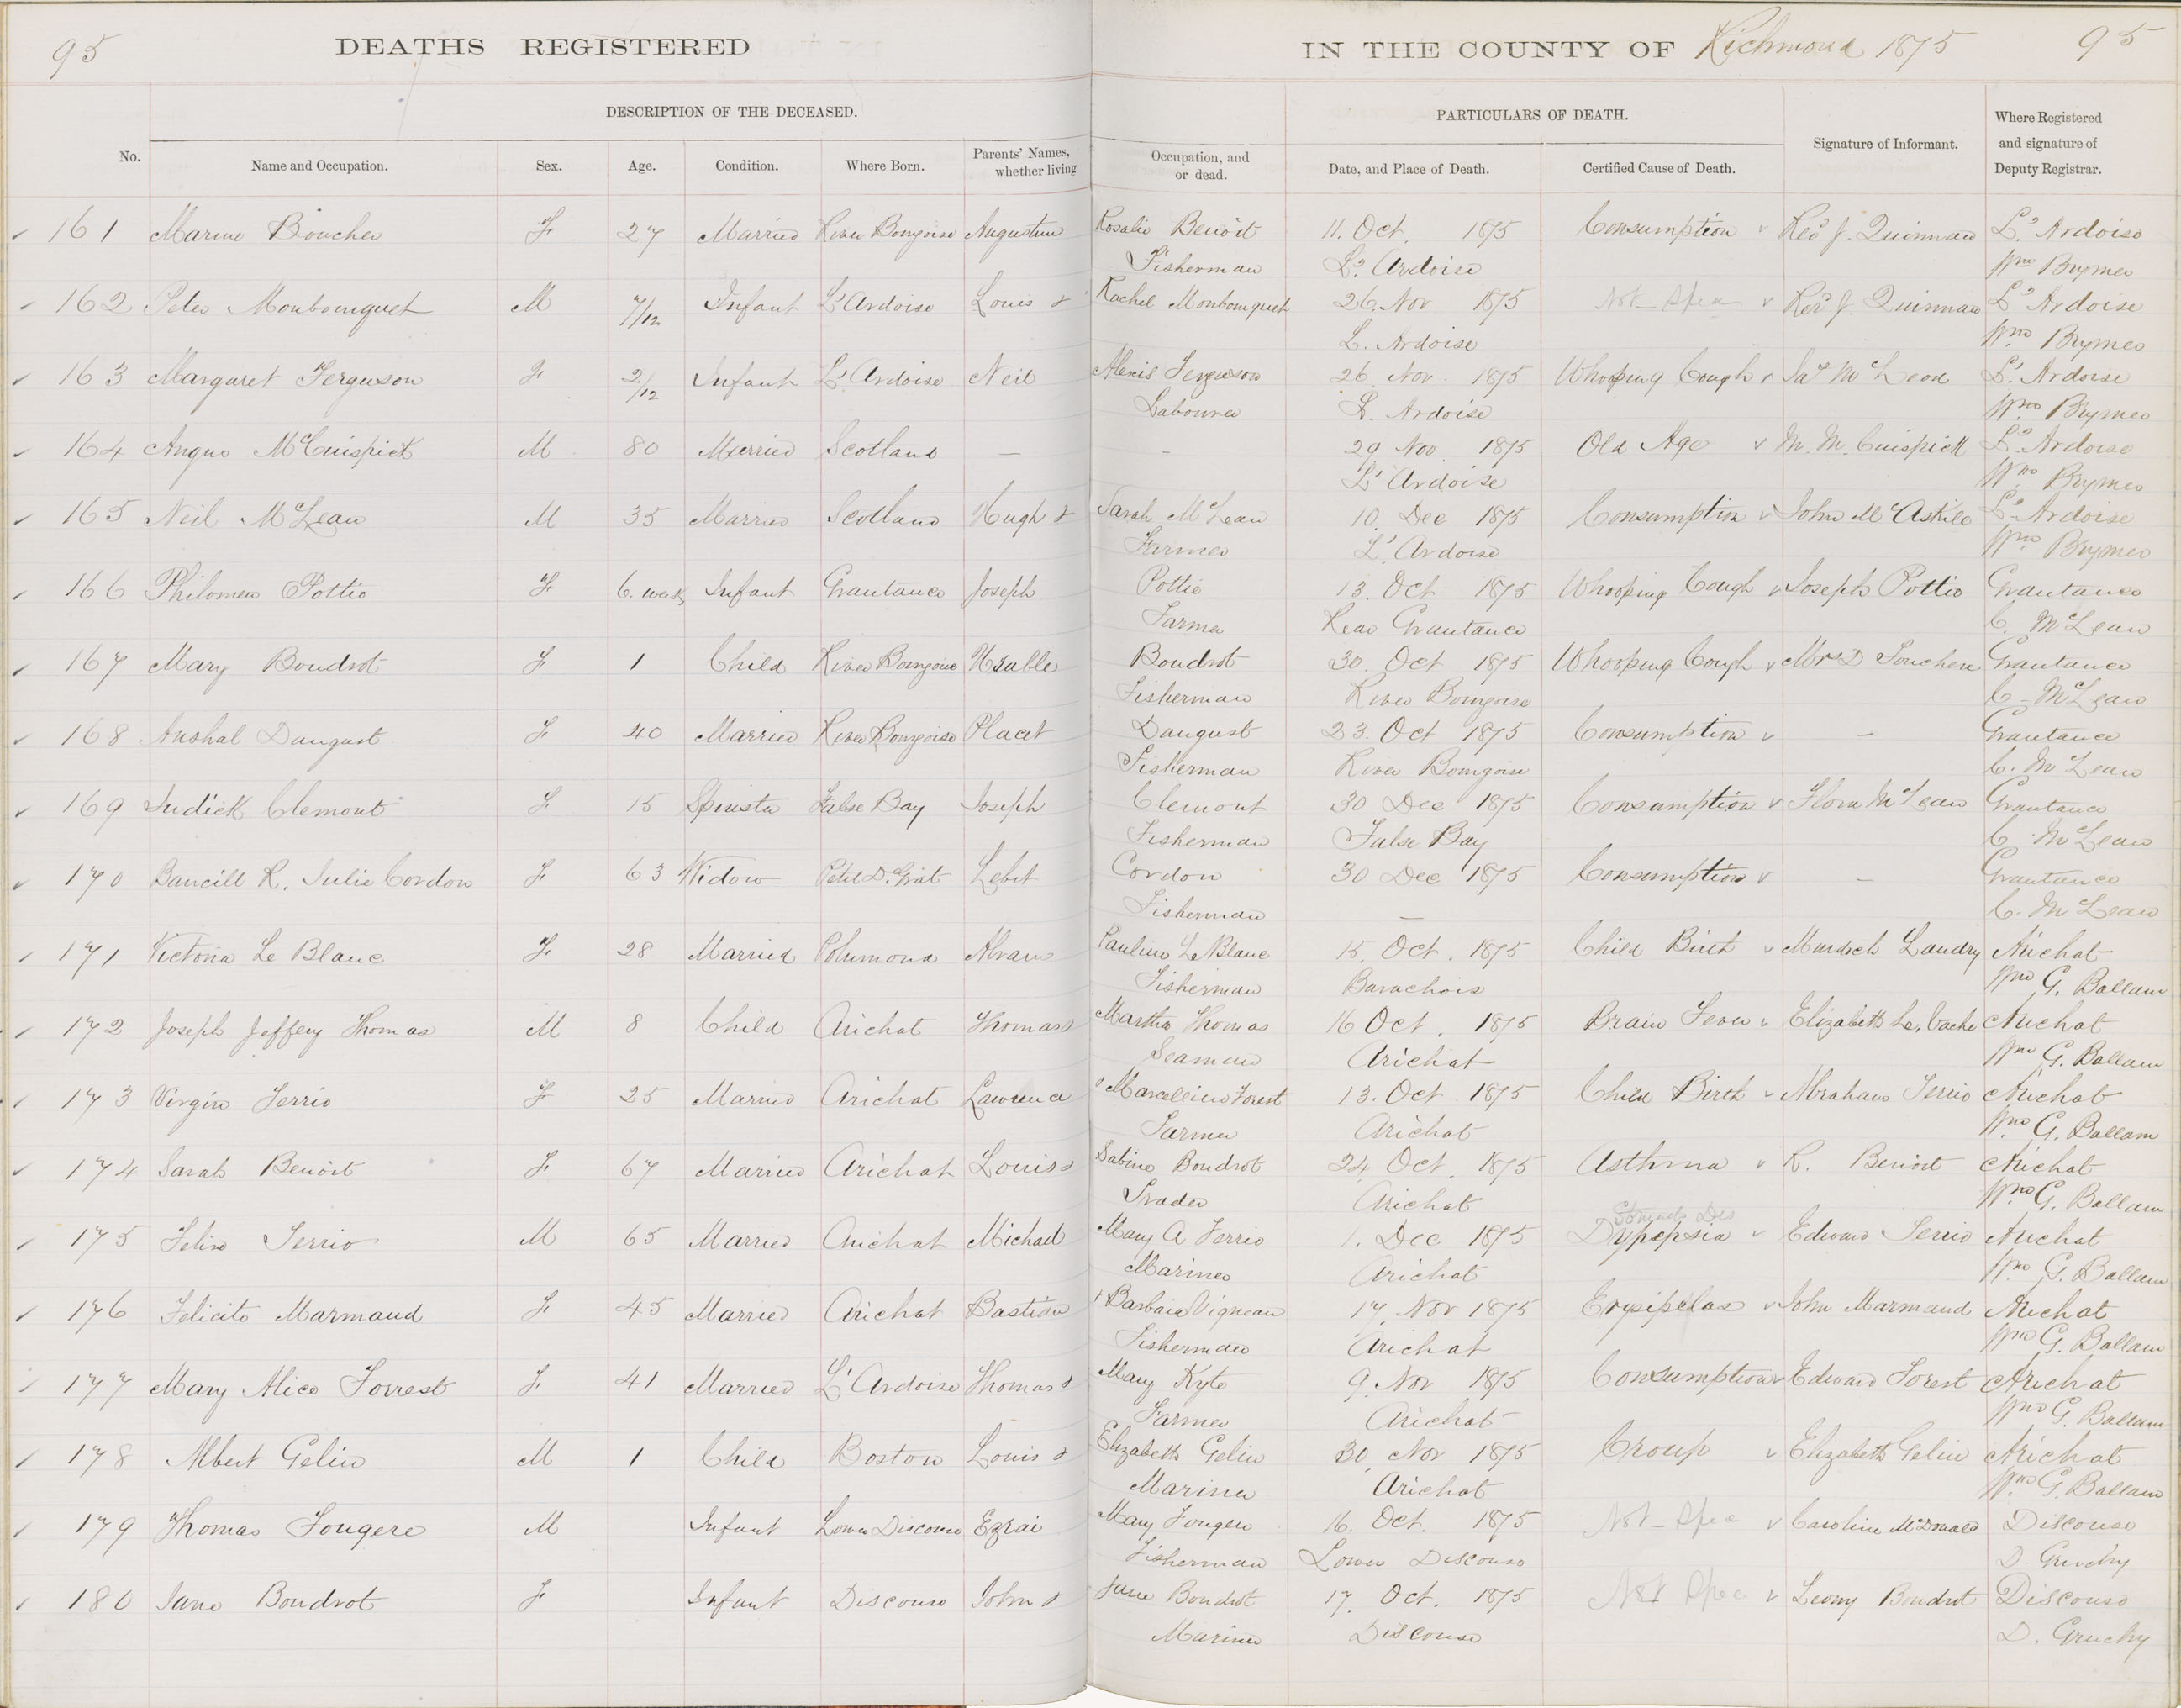 95
DEATHS REGISTERED
IN THE COUNTY OF Richmond 1875
95
DESCRIPTION OF THE DECEASED.
PARTICULARS OF DEATH.
No.
Name and Occupation.
Sex.
Age.
Condition.
Where Born.
Parents' Names, whether living
Occupation, and or dead.
Date, and Place of Death.
Certified Cause of Death.
Signature of Informant.
Where Registered and signature of Deputy Registrar.
161 Marine Boucher F 27 Married River Bourgoise Augustin Rosalie Benoit 11. Oct. 1875 Consumption Revd J. Quinnan L'Ardoise
Fisherman L'Ardoise Wm Brymer
162 Peter Monbourquet M 7/12 Infant L'Ardoise Louis & Rachel Monbourquet 26. Nov 1875 Not Spec Revd J. Quinnan L'Ardoise
L. Ardoise Wm Brymer
163 Margaret Ferguson F 2/12 Infant L'Ardoise Neil Alexis Ferguson 26 Nov. 1875 Whooping Cough Jas McLeod L'Ardoise
Labourer L. Ardoise Wm Brymer
164 Angus McCuispick M 80 Married Scotland — — 29 Nov 1875 Old Age M. McCuispick L'Ardoise
L'Ardoise Wm Brymer
165 Neil McLean M 35 Married Scotland Hugh & Sarah McLean 10. Dec 1875 Consumption John McAskile L'Ardoise
Farmer L'Ardoise Wm Brymer
166 Philomen Pottie F 6. weeks Infant Grantance Joseph Pottie 13. Oct 1875 Whooping Cough Joseph Pottie Grantance
Farmer Rear Grantance C. McLean
167 Mary Boudrot F 1 Child River Bourgoise Usable Boudrot 30. Oct 1875 Whooping Cough Mrs D Touchere Grantance
Fisherman River Bourgoise C. McLean
168 Aushal Daugust F 40 Married River Bourgoise Placet Daugust 23. Oct 1875 Consumption — Grantance
Fisherman River Bourgoise C. McLean
169 Judick Clemont F 15 Spinster False Bay Joseph Clemont 30 Dec 1875 Consumption Flora McLean Grantance
Fisherman False Bay C. McLean
170 R. Julie Cordon F 63 Widow Petit D. Grat Lebet Cordon 30 Dec 1875 Consumption — Grantance
Fisherman — C. McLean
171 Victoria Le Blanc F 28 Married Polumond Abram Pauline LeBlanc 15. Oct. 1875 Child Birth Murdoch Landry Arichat
Fisherman Barachois Wm G. Ballam
172 Joseph Jeffery Thomas M 8 Child Arichat Thomas & Martha Thomas 16 Oct. 1875 Brain Fever Elizabeth Le,Vache Arichat
Seaman Arichat Wm G. Ballam
173 Virgin Terrio F 25 Married Arichat Lawrence & Marcelline Forest 13. Oct. 1875 Child Birth Abraham Terrio Arichat
Farmer Arichat Wm G. Ballam
174 Sarah Benoit F 67 Married Arichat Louis & Sabine Boudrot 24 Oct. 1875 Asthma R. Benoit Arichat
Trader Arichat Wm G. Ballam
175 Felix Terrio M 65 Married Arichat Michael Mary A Terrio 1. Dec 1875 Stomach Dis Dypepsia Edward Terrio Arichat
Mariner Arichat Wm G. Ballam
176 Felicite Marmaud F 45 Married Arichat Bastian & Barbara Vigneau 17. Nov 1875 Erysipelas John Marmaud Arichat
Fisherman Arichat Wm G. Ballam
177 Mary Alice Forrest F 41 Married L'Ardoise Thomas & Mary Kyte 9. Nov 1875 Consumption Edward Forest Arichat
Farmer Arichat Wm G. Ballam
178 Albert Gelin M 1 Child Boston Louis & Elizabeth Gelin 30 Nov 1875 Croup Elizabeth Gelin Arichat
Mariner Arichat Wm G. Ballam
179 Thomas Fougere M Infant Lower Discouse Ezrai Mary Fougere 16. Oct. 1875 Not Spec Caroline McDonald Discouse
Fisherman Lower Discouse D. Gruchy
180 Jane Boudrot F Infant Discouse John & Jane Boudrot 17. Oct. 1875 Not Spec Leony Boudrot Discouse
Mariner Discouse D. Gruchy